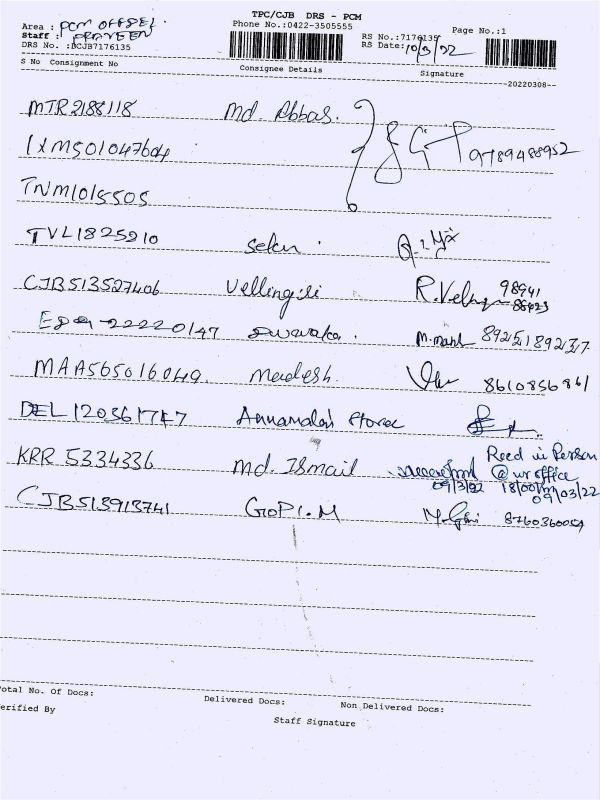 TPC/CJB DRS - PCM
Area : PCM OFFSEL. Phone No.:0422-3505555 Page No.:1
Staff : PRAVEEN RS No.:7176135
DRS No. :BCJB7176135 RS Date: 10/3/22
S No Consignment No Consignee Details Signature
--20220308--
MTR2188118 Md. Abbas.
1XM501047604 9789488952
TNM1015505
TVL1825210 Selvi.
CJB513527406 Vellingiri R.Velu 98941
22220147 8925189237
MAA565016049. Madesh. 8610856861
DEL120361747 Annamalai Store
KRR 5334336 Md. Ismail Recd in Person
@ ur office
09/3/22 18/00 09/03/22
CJB513913741 GOPI.M M.Gopi 8760360054
Total No. Of Docs: Delivered Docs: Non Delivered Docs:
Verified By Staff Signature